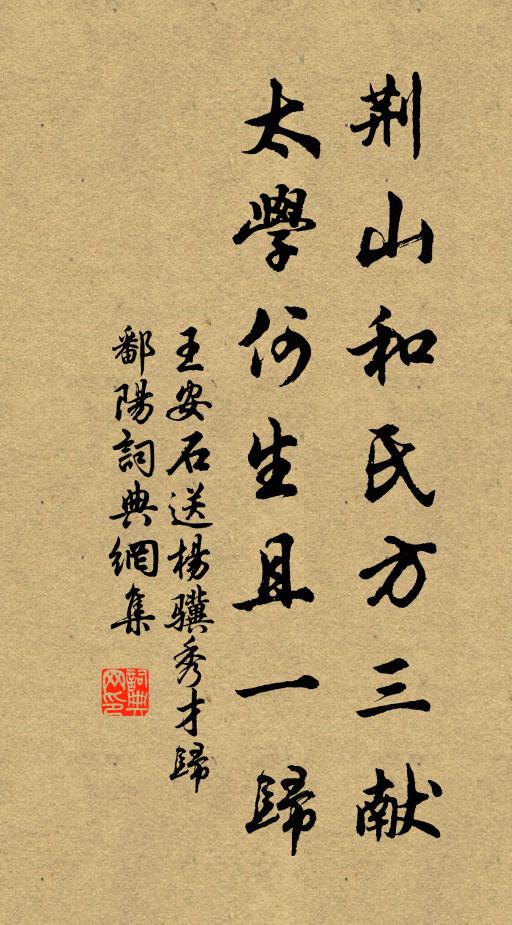 荆山和氏方三献
太學何生且一歸
王安石送楊驥秀才歸
鄱陽詞典網集
詞典
网印